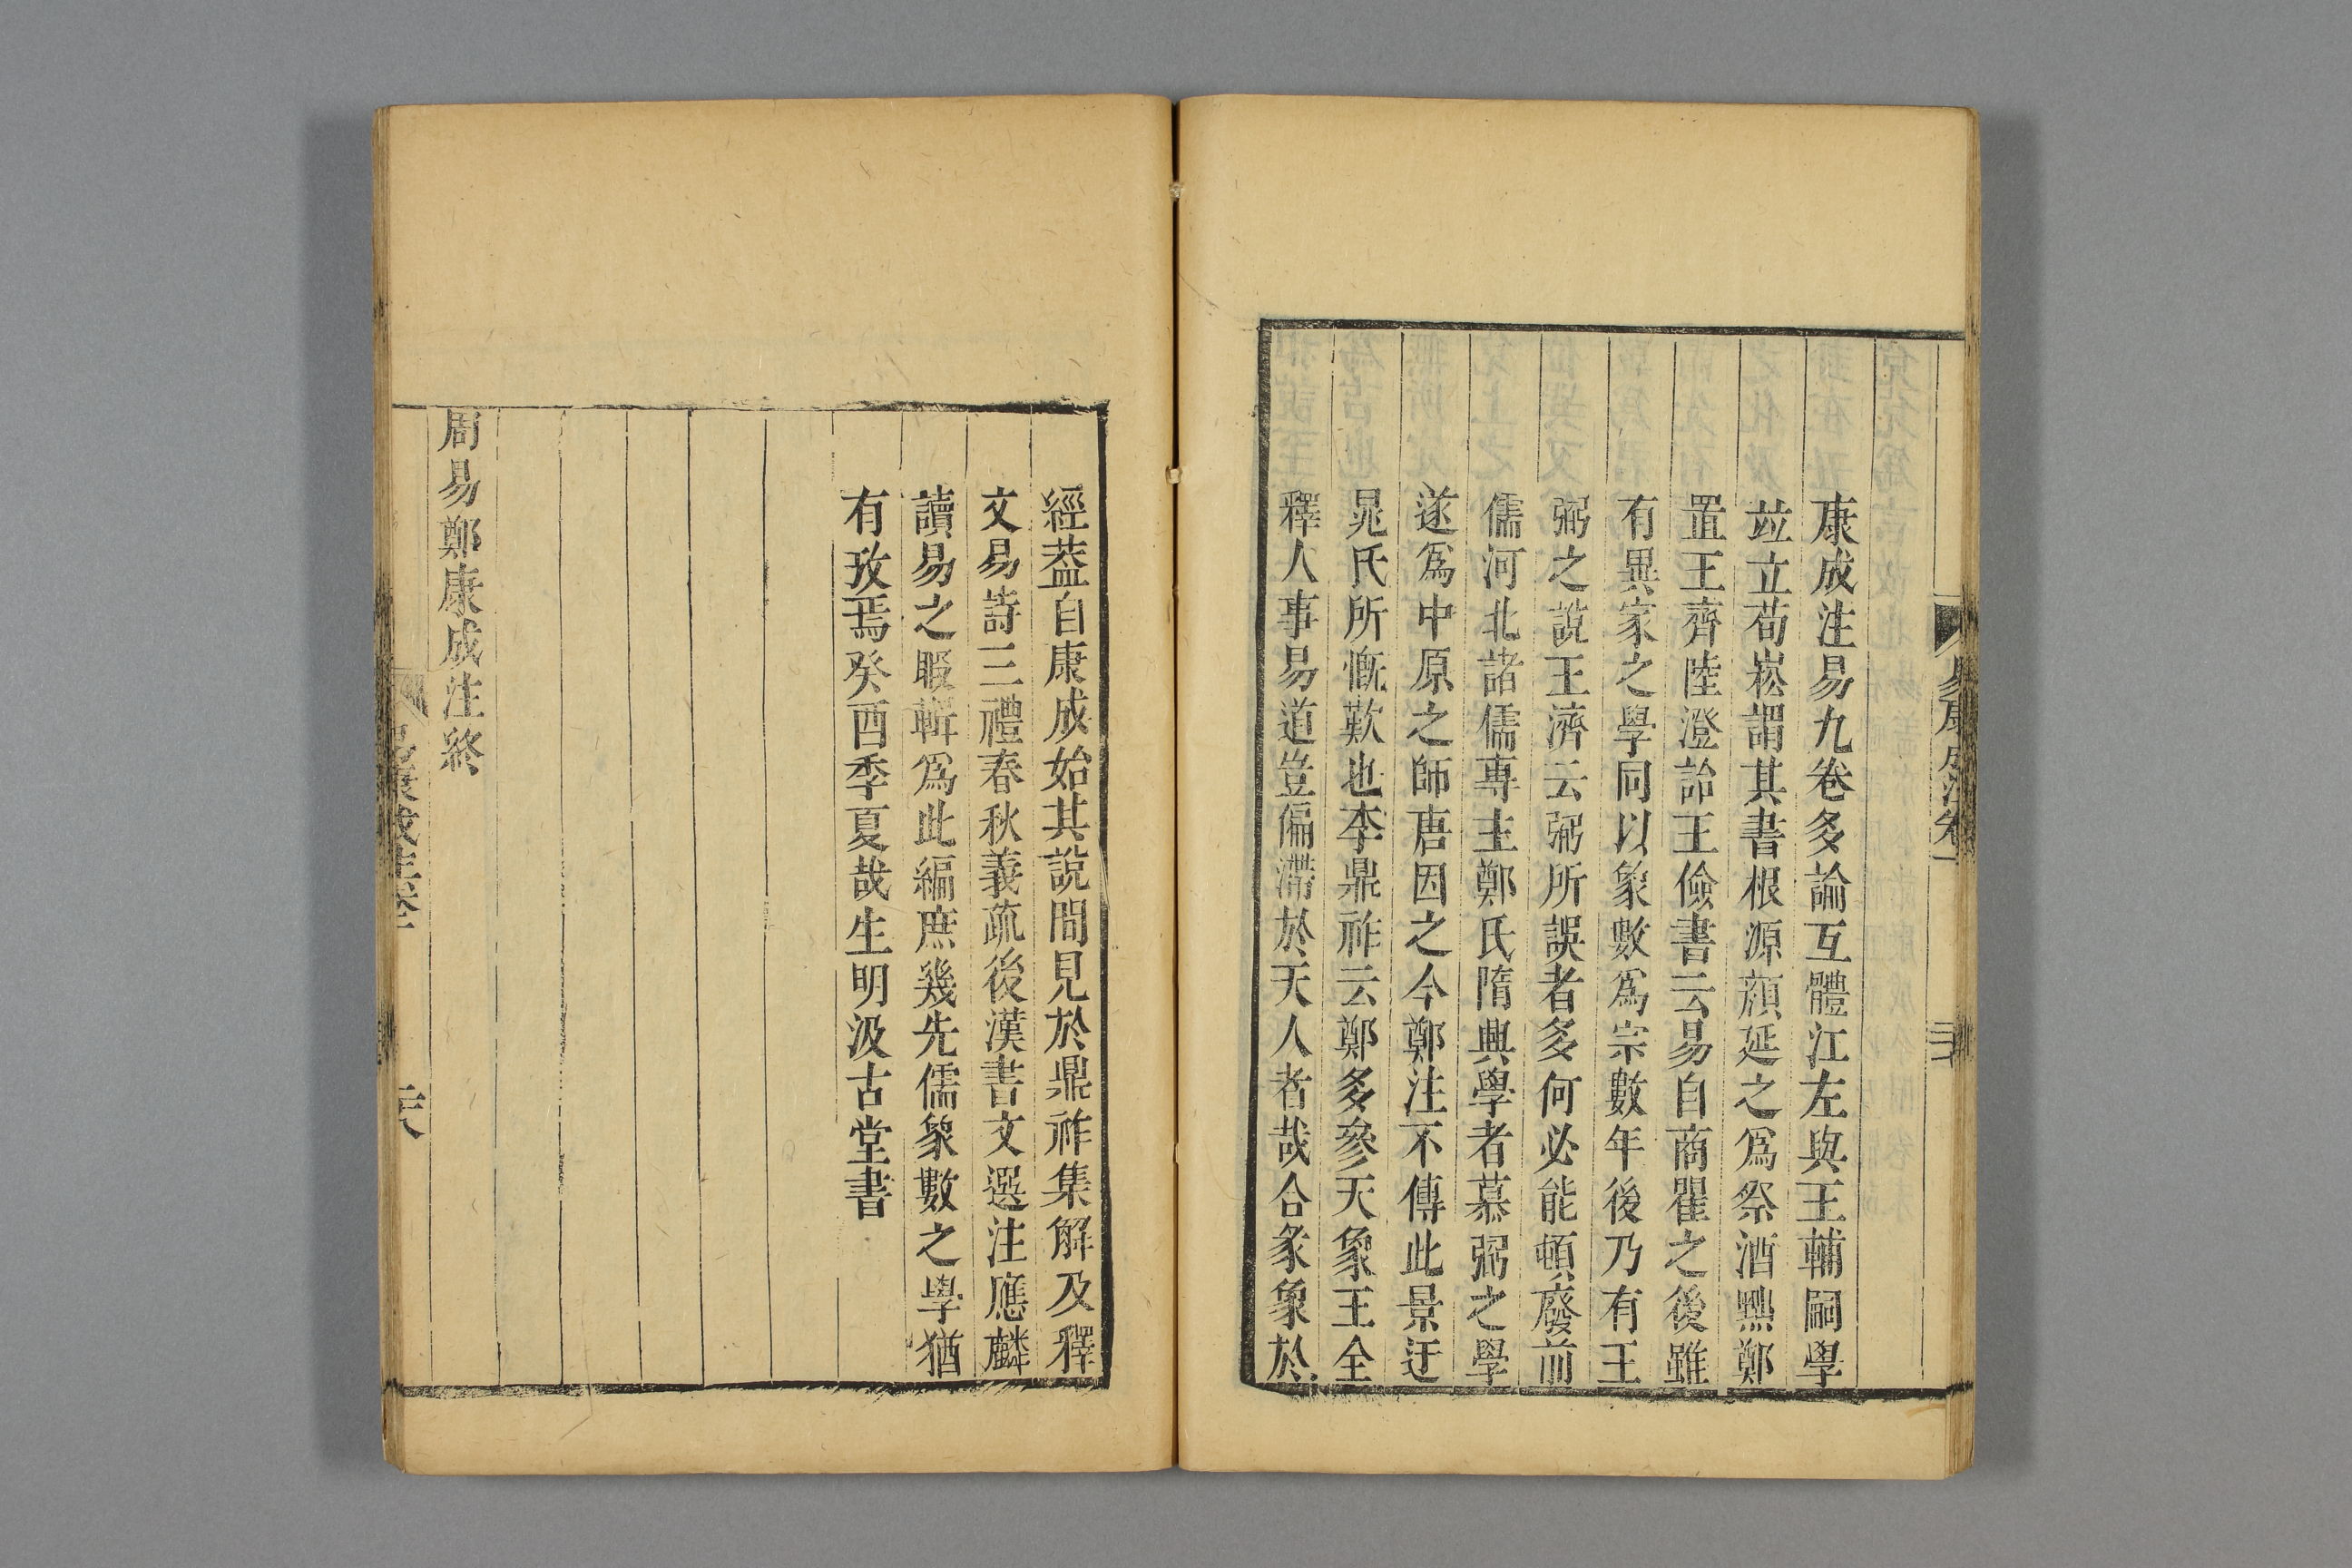 康成注易九卷多論互體江左與王輔嗣學
竝立荀崧謂其書根源顏延之爲祭酒黜鄭
置王齊陸澄詒王儉書云易自商瞿之後雖
有異家之學同以象數爲宗數年後乃有王
弼之說王濟云弼所誤者多何必能頓廢前
儒河北諸儒專主鄭氏隋興學者慕弼之學
遂爲中原之師唐因之今鄭注不傳此景迂
晁氏所慨歎也李鼎祚云鄭多參天象王全
釋人事易道豈偏滯於天人者哉合彖象於
經葢自康成始其說間見於鼎祚集解及釋
文易詩三禮春秋義疏後漢書文選注應麟
讀易之暇輯爲此編庶幾先儒象數之學猶
有攷焉癸酉季夏哉生明汲古堂書
周易鄭康成注終